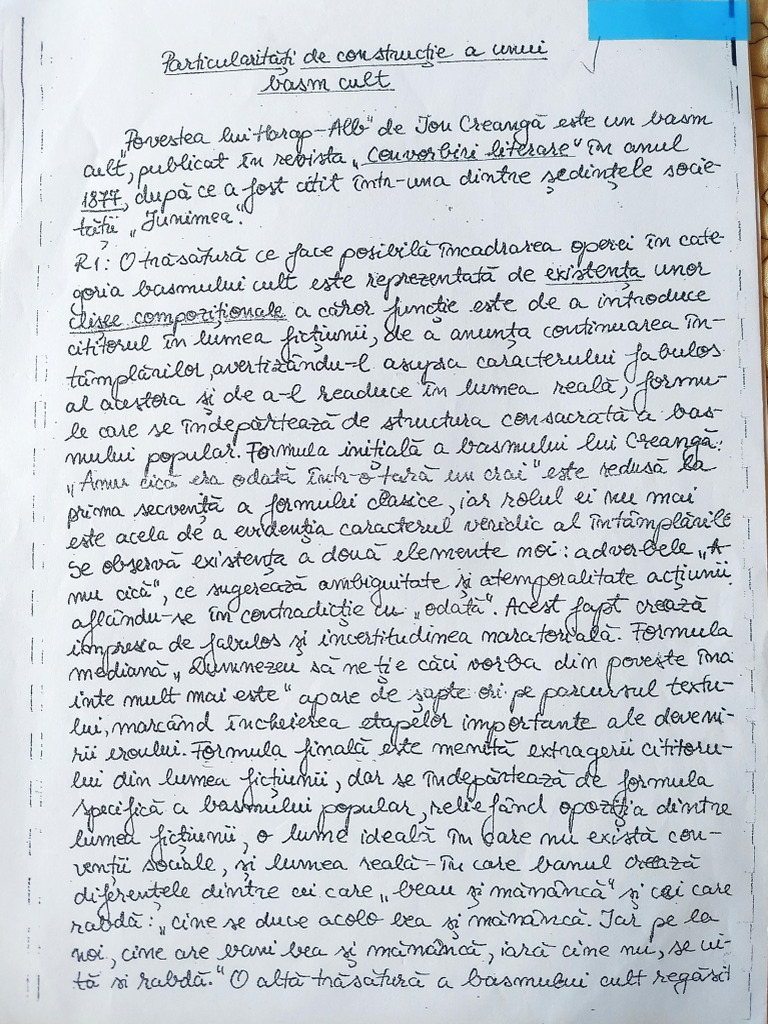 Particularități de construcție a unui
basm cult
"Povestea lui Harap-Alb" de Ion Creangă este un basm
cult, publicat în revista „Convorbiri literare" în anul
1877, după ce a fost citit într-una dintre ședințele socie-
tății „Junimea".
R1: O trăsătură ce face posibilă încadrarea operei în cate-
goria basmului cult este reprezentată de existența unor
clișee compoziționale a căror funcție este de a introduce
cititorul în lumea ficțiunii, de a anunța continuarea în-
tâmplărilor, avertizându-l asupra caracterului fabulos
al acestora și de a-l readuce în lumea reală, formu-
le care se îndepărtează de structura consacrată a bas-
mului popular. Formula inițială a basmului lui Creangă:
„Amu cică era odată într-o țară un crai" este redusă la
prima secvență a formului clasice, iar rolul ei nu mai
este acela de a evidenția caracterul veridic al întâmplările
Se observă existența a două elemente noi: adverbele „A-
mu cică", ce sugerează ambiguitate și atemporalitate acțiunii,
aflându-se în contradicție cu „odată". Acest fapt crează
impresia de fabulos și incertitudinea naratorială. Formula
mediană „Dumnezeu să ne ție căci vorba din poveste îna
inte mult mai este" apare de șapte ori pe parcursul textu-
lui, marcând încheierea etapelor importante ale deveni-
rii eroului. Formula finală este menită extragerii cititoru-
lui din lumea ficțiunii, dar se îndepărtează de formula
specifică a basmului popular, reliefând opoziția dintre
lumea ficțiunii, o lume ideală în care nu există con-
venții sociale, și lumea reală - în care banul crează
diferențele dintre cei care „beau și mămâncă" și cei care
rabdă: „cine se duce acolo bea și mămâncă. Iar pe la
noi, cine are bani bea și mămâncă, iară cine nu, se ui-
tă si rabdă." O altă trăsătură a basmului cult regăsit